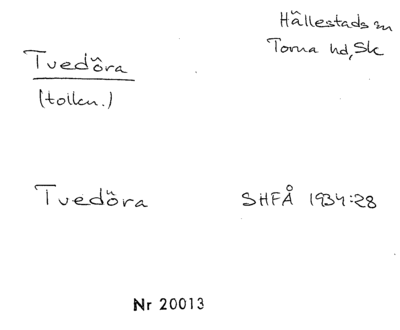 Hällestads sn
Torna hd, Sk
Tvedöra
(tolkn.)
Tvedöra SHFÅ 1934:28
Nr 20013